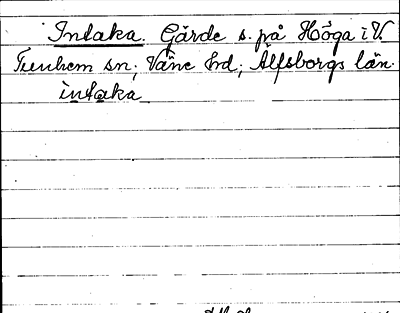 Intaka. Gärde s. på Höga i V.
Tunhem sn; Väne hd; Älfsborgs län.
ìntaka